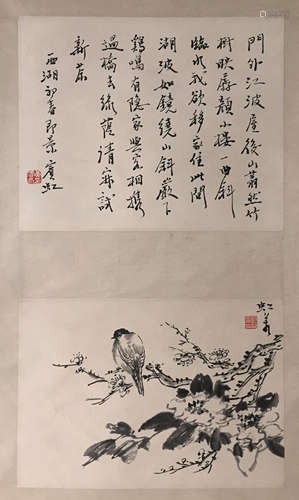 門外江波屋後山蕭然竹
樹映孱顏小樓一曲斜
臨水我欲移家住此間
湖波如鏡繞山斜巖下
鷄鳴有隱家與客相攜
過橋去綠蔭清齋試
新茶
西湖初春即景 賓虹
虹叟